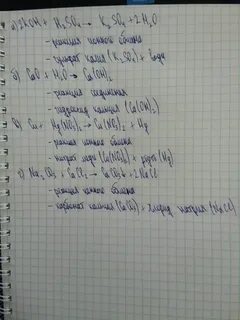 а) 2KOH + H₂SO₄ → K₂SO₄ + 2H₂O
- реакция ионного обмена
- сульфат калия (K₂SO₄) + вода
б) CaO + H₂O → Ca(OH)₂
- реакция соединения
- гидроксид кальция (Ca(OH)₂)
в) Cu + Hg(NO₃)₂ → Cu(NO₃)₂ + Hg
- реакция ионного обмена
- нитрат меди (Cu(NO₃)₂) + ртуть (Hg)
г) Na₂CO₃ + CaCl₂ → CaCO₃↓ + 2NaCl
- реакция ионного обмена
- карбонат кальция (CaCO₃) + хлорид натрия (NaCl)